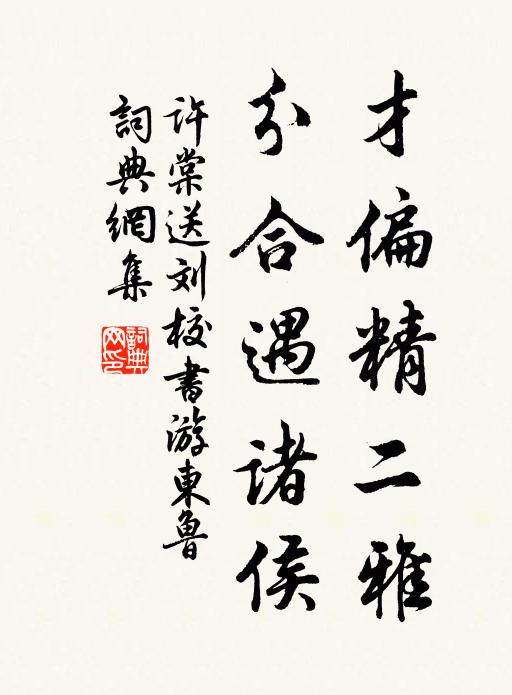 才偏精二雅
分合遇诸侯
许棠送刘校書游東魯
詞典網集
詞典网印